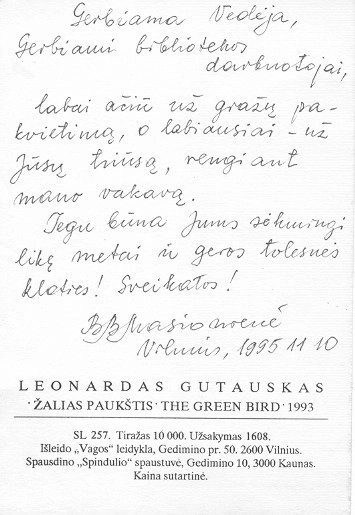 Gerbiama Vedėja,
Gerbiami bibliotekos
darbuotojai,
labai ačiū už gražų pa-
kvietimą, o labiausiai – už
Jūsų triūsą, rengiant
mano vakarą.
Tegu būna Jums sėkmingi
likę metai ir geros tolesnės
kloties! Sveikatos!
Vilnius, 1995 11 10
LEONARDAS GUTAUSKAS
· ŽALIAS PAUKŠTIS · THE GREEN BIRD · 1993
SL 257. Tiražas 10 000. Užsakymas 1608.
Išleido „Vagos" leidykla, Gedimino pr. 50. 2600 Vilnius.
Spausdino „Spindulio" spaustuvė, Gedimino 10, 3000 Kaunas.
Kaina sutartinė.